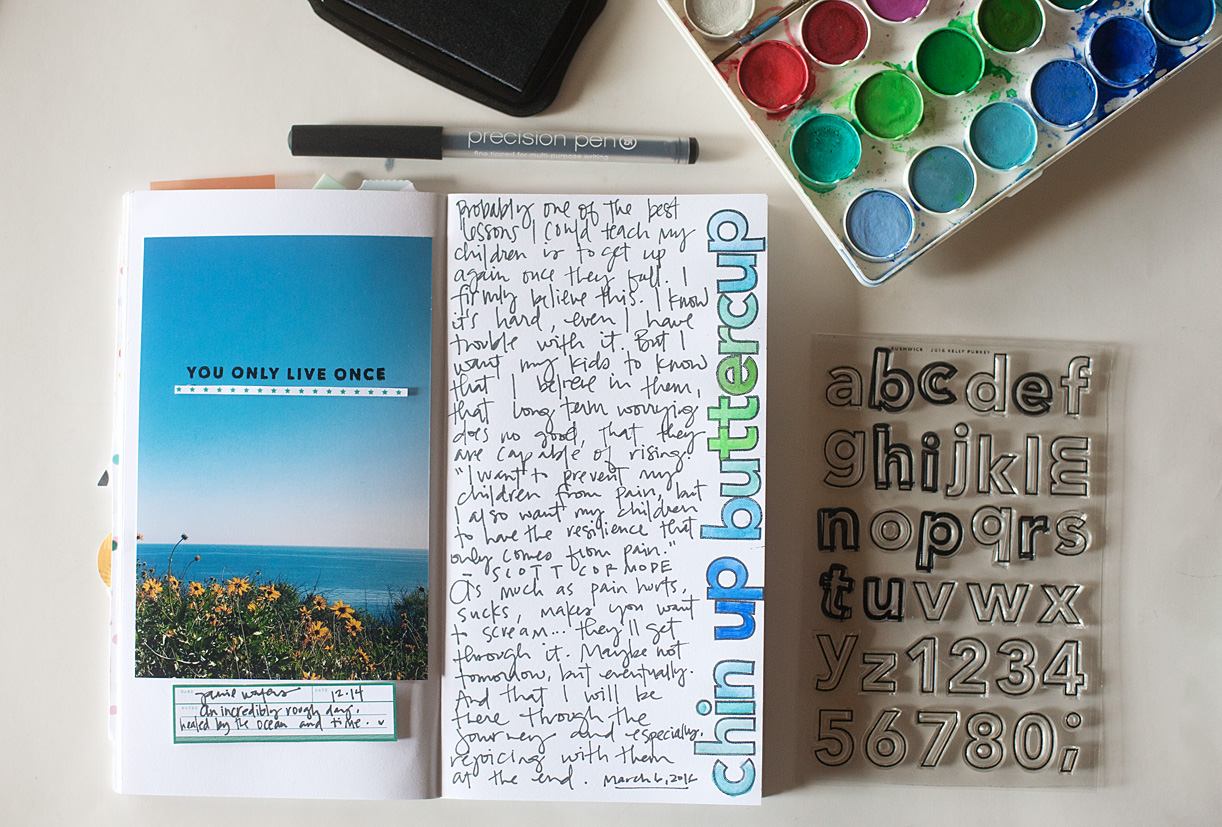 precision pen
fine tipped for multi-purpose writing
YOU ONLY LIVE ONCE
12.14
an incredibly rough day.
healed by the ocean and time.
Probably one of the best
lessons I could teach my
children is to get up
again once they fall. I
firmly believe this. I know
it's hard, even I have
trouble with it. But I
want my kids to know
that I believe in them,
that long term worrying
does no good, that they
are capable of rising.
"I want to prevent my
children from pain, but
I also want my children
to have the resilience that
only comes from pain."
- SCOTT CORMODE
As much as pain hurts,
sucks, makes you want
to scream... they'll get
through it. Maybe not
tomorrow, but eventually.
And that I will be
there through the
journey and especially,
rejoicing with them
at the end. March 6, 2016
chin up buttercup
BUSHWICK 2016 KELLY PURKEY
abcdef
ghijklm
nopqrs
tuvwx
yz1234
567890;